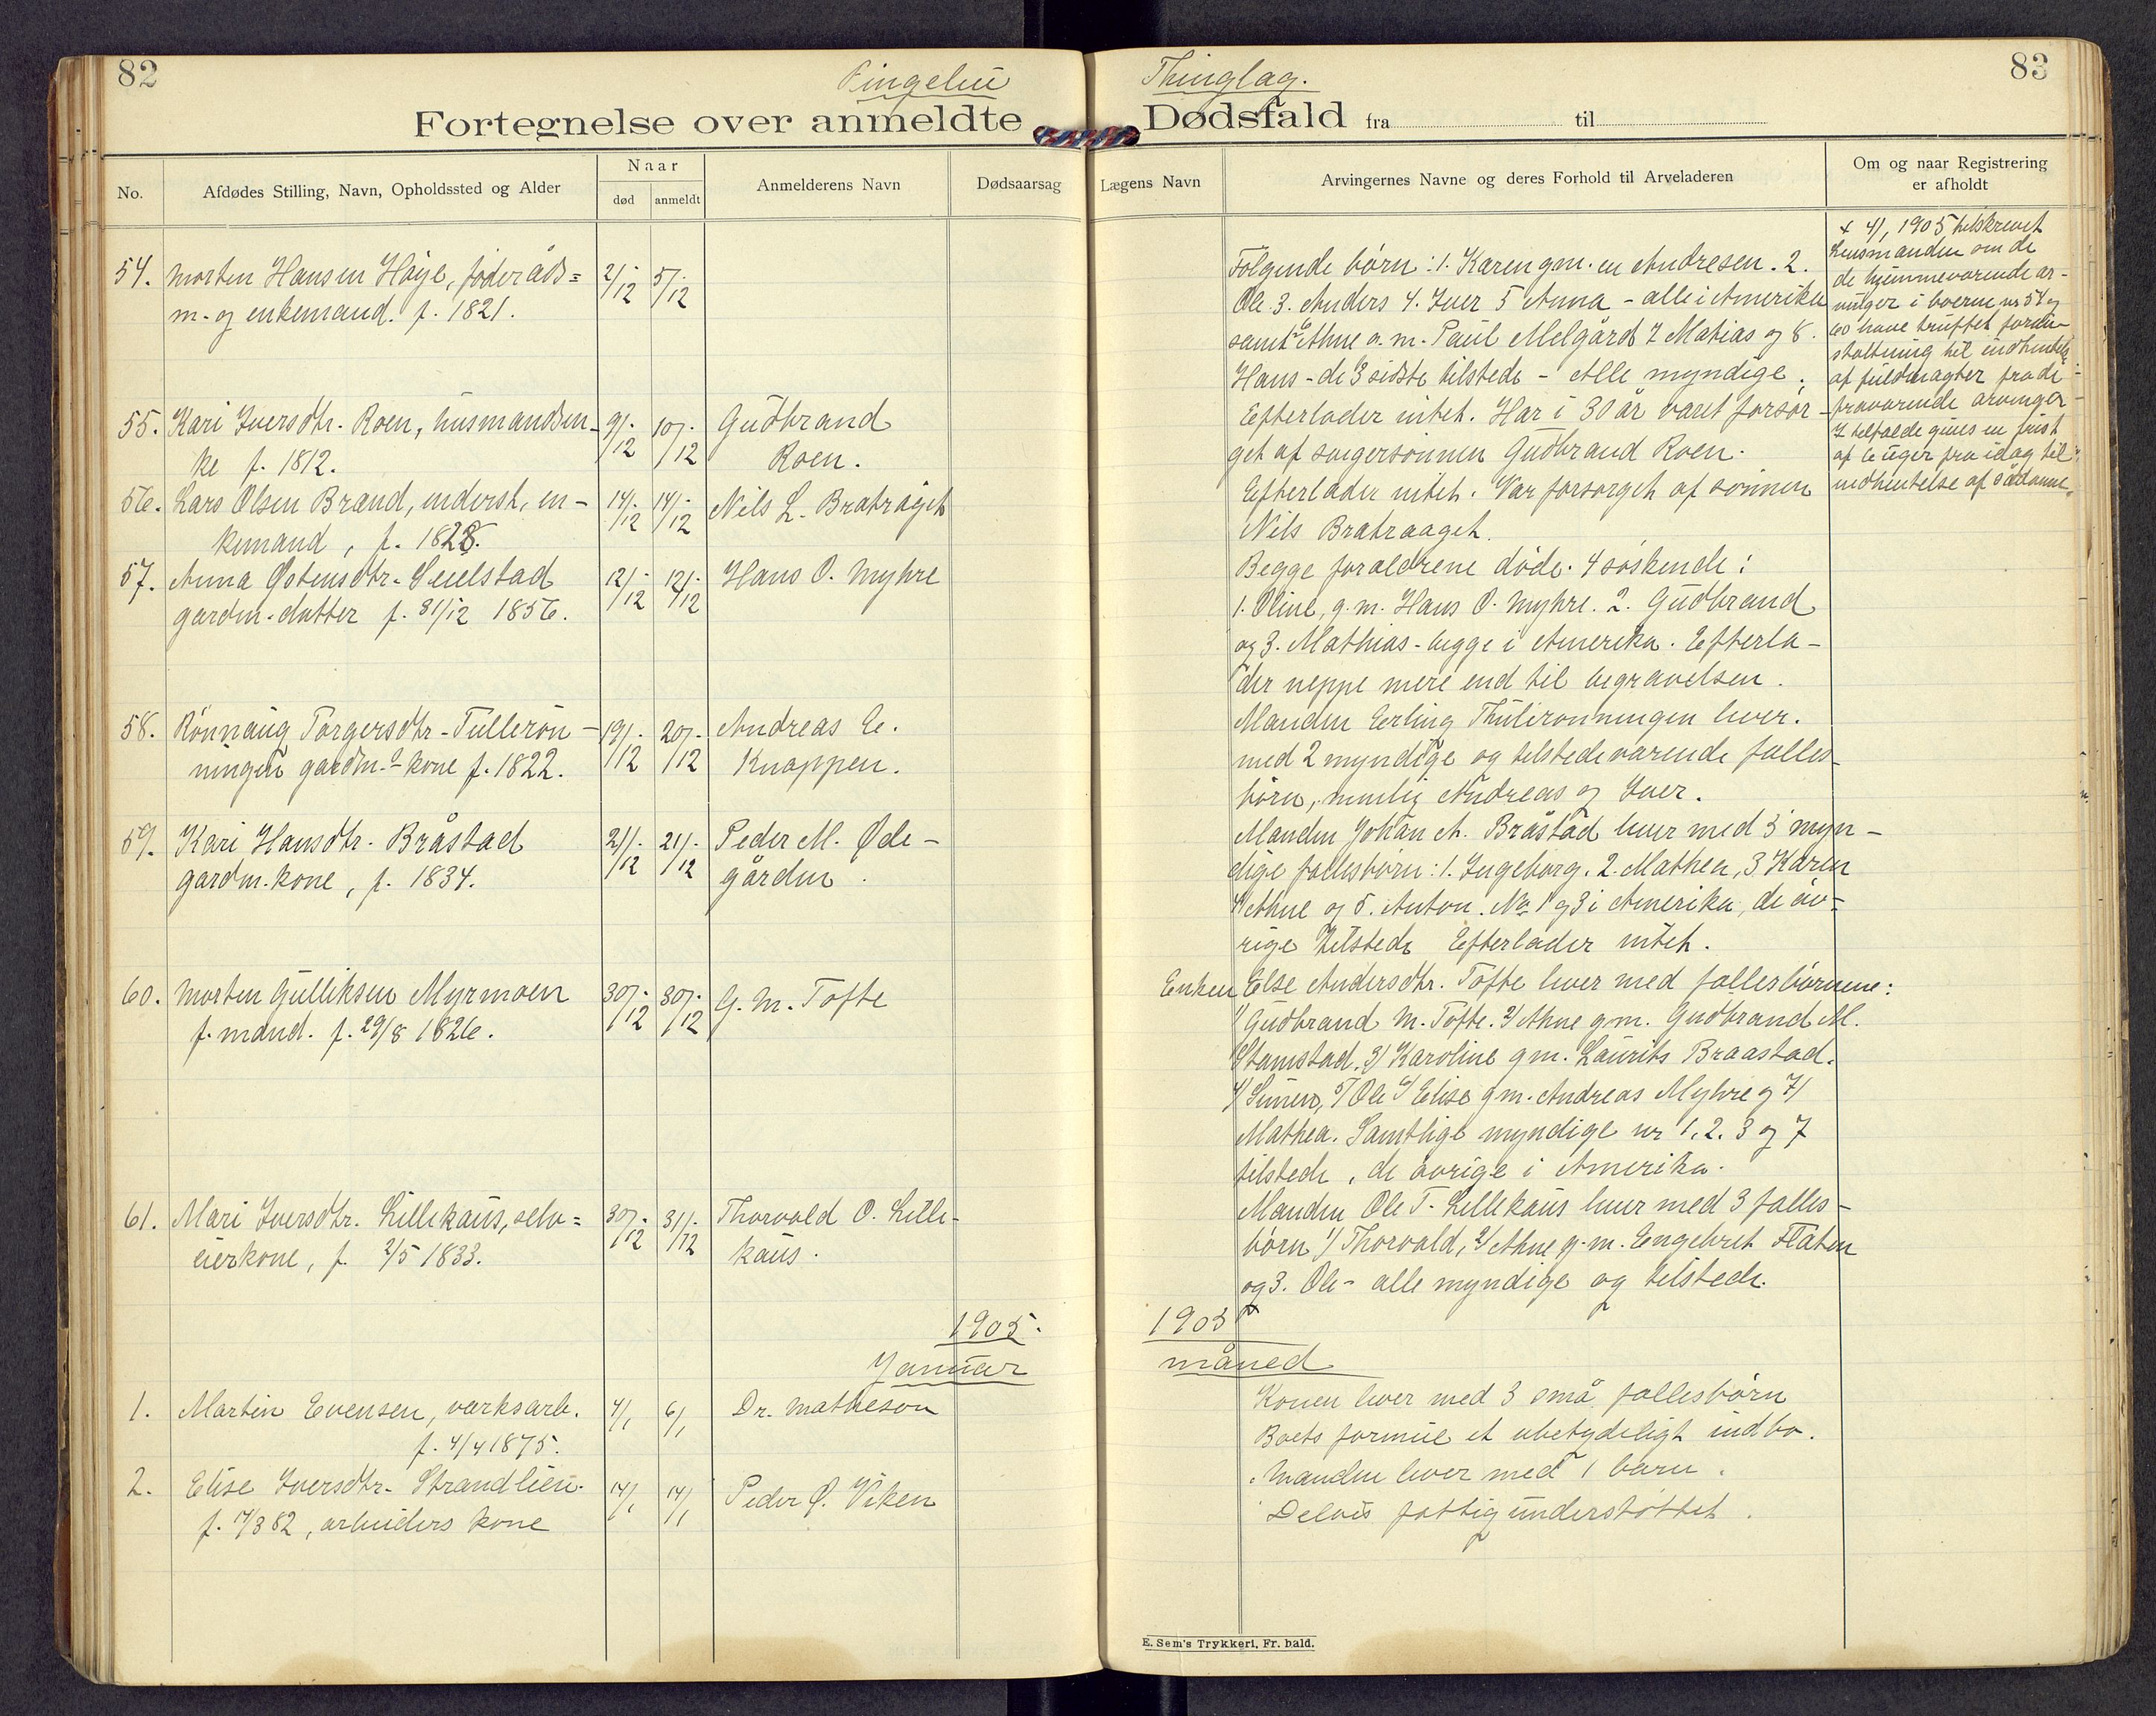 82
Ringebu
Thinglag.
83
Fortegnelse over anmeldte
Dødsfald fra til
No.
Afdødes Stilling, Navn, Opholdssted og Alder
Naar
død
anmeldt
Anmelderens Navn
Dødsaarsag
Lægens Navn
Arvingernes Navne og deres Forhold til Arveladeren
Om og naar Registrering
er afholdt
54. Morten Hansen Høye, føderåds=
m. og enkemand. f. 1821.
2/12 5/12
55. Kari Iversdtr. Roen, husmandsen-
ke f. 1812.
9/12 10/12 Gudbrand
Roen.
56. Lars Olsen Brænd, inderst, en-
kemand, f. 1828.
14/12 14/12 Nils L. Bratråget
57. Anna Østensdtr.
gardm. datter f. 31/12 1856.
12/12 12/12 Hans O. Myhre
58. Rønnaug Torgersdtr. Tullerøn-
ningen gardm. kone f. 1822.
19/12 20/12 Andreas E.
Knappen.
59. Kari Hansdtr. Bråstad
gardm. kone, f. 1834.
21/12 21/12 Peder M. Øde-
gården.
60. Morten Gulliksen Myrmoen
f. mand. f. 29/8 1826.
30/12 30/12 G. M. Tofte
61. Mari Iversdtr. Lillekaus, selv=
eierkone, f. 2/5 1833.
30/12 31/12 Thorvald O. Lille-
kaus.
1905.
Januar
1. Martin Evensen, værksarb.
f. 4/4 1875.
4/1 6/1 Dr. Matheson
2. Elise Iversdtr. Strandlien.
f. 17/3 82, arbeiders kone
14/1 14/1 Peder O. Viken
Følgende børn: 1. Karen gm. en Andresen. 2.
Ole 3. Anders 4. Iver 5 Anna - alle i Amerika
samt 6 Ahne g. m. Paul Melgård 7 Matias og 8.
Hans - de 3 sidste tilstede - Alle myndige.
Efterlader intet. Har i 30 år været forsør-
get af svigersønnen Gudbrand Roen.
Efterlader intet. Var forsørget af sønnen
Nils Bratraaget.
Begge forældrene døde. 4 søskende:
1. Oline, g. m. Hans O. Myhre. 2. Gudbrand
og 3. Mathias - begge i Amerika. Efterla-
der neppe mere end til begravelsen.
Manden Erling Thulerønningen lever.
med 2 myndige og tilstedeværende fælles-
børn, nemlig Andreas og Iver.
Manden Johan A. Bråstad lever med 5 myn-
dige fællesbørn: 1. Ingeborg. 2. Mathea, 3 Karen
4 Ahne og 5. Anton. No 1 og 3 i Amerika, de øv=
rige tilstede Efterlader intet.
Enken Else Andersdtr. Tofte lever med fællesbørnene:
1/ Gudbrand M. Tofte. 2/ Ahne gm. Gudbrand M.
Stamstad. 3/ Karoline gm. Laurits Braastad.
4/ Simen, 5/ Ole 6/ Elise gm. Andreas Myhre og 7/
Mathea. Samtlige myndige nr 1. 2. 3 og 7
tilstede, de øvrige i Amerika.
Manden Ole T. Lillekaus lever med 3 fælles-
børn 1/ Thorvald, 2/ Ahne g. m. Engebret Flaten
og 3. Ole - alle myndige og tilstede.
1905
måned
Konen lever med 3 små fællesbørn
Boets formue et ubetydeligt indbo.
Manden lever med 1 barn.
Delvis fattigunderstøttet.
x 4/1 1905 tilskrevet
Lensmanden om de
de hjemmeværende ar-
vinger i boerne nr 54 og
60 have truffet foran-
staltning til indhentelse
af fuldmagter fra de
fraværende arvinger
I tilfælde gives en frist
af 6 uger fra idag til
indhentelse af sådanne.
E. Sem's Trykkeri, Fr. hald.